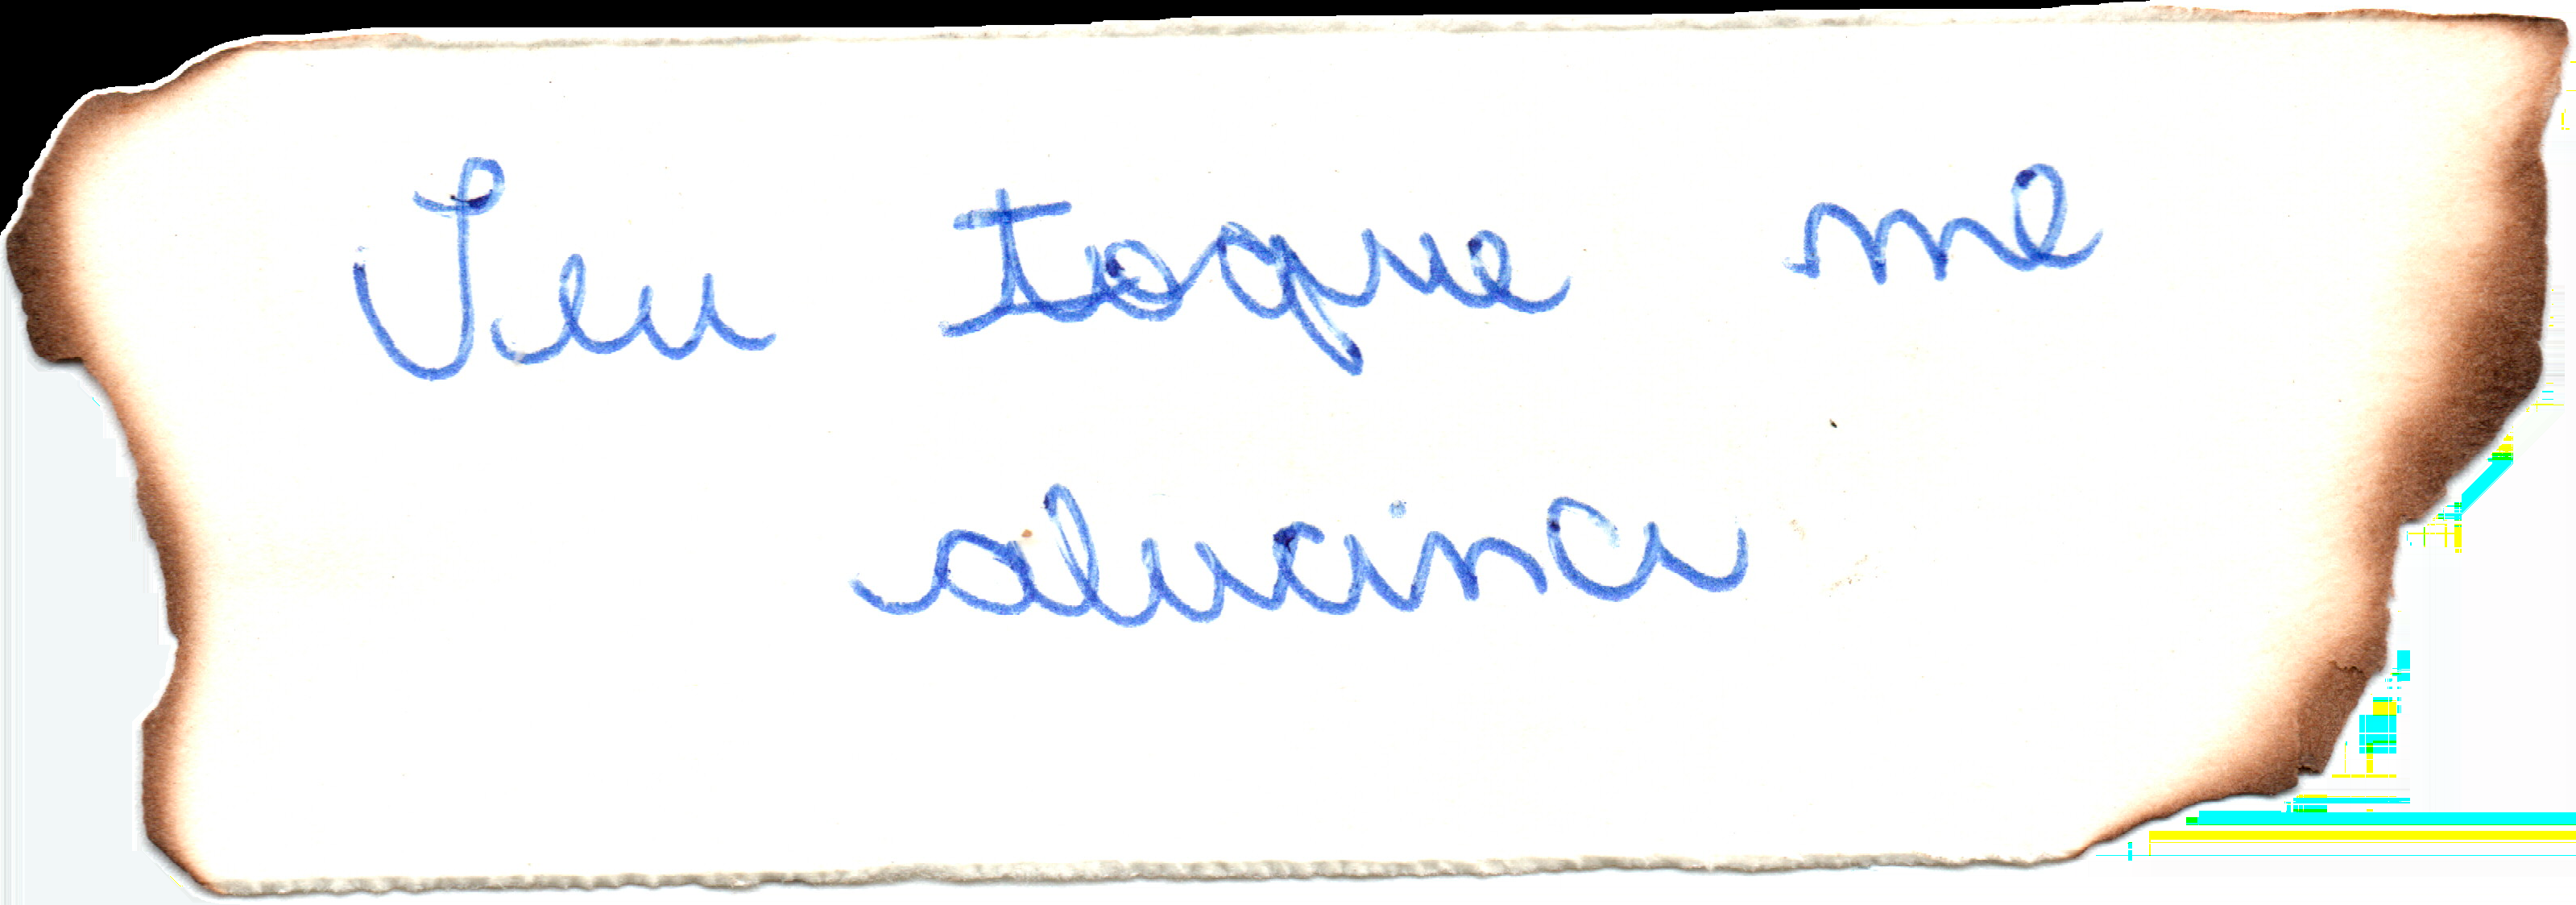 Seu toque me
alucina